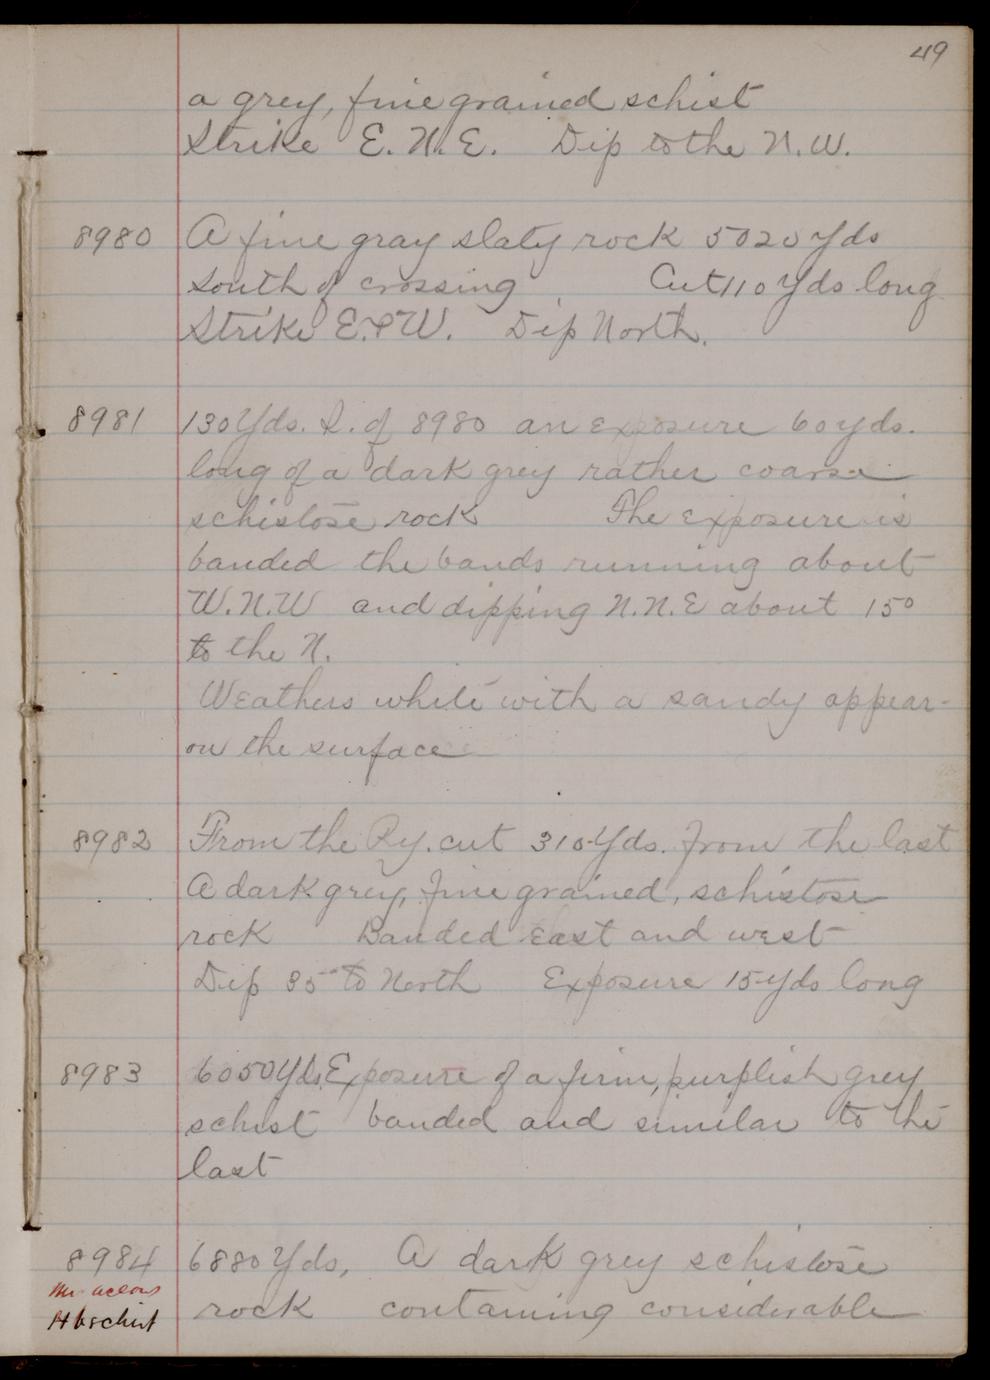 49
a grey, fine grained schist
Strike E.N.E. Dip to the N.W.
8980 A fine gray slaty rock 5020 Yds
south of crossing Cut 110 Yds long
Strike E.&W. Dip North.
8981 130 Yds. S. of 8980 an exposure 60 yds.
long of a dark grey rather coarse
schistose rock The exposure is
banded the bands running about
W.N.W and dipping N.N.E about 15°
to the N.
Weathers white with a sandy appear-
on the surface
8982 From the Ry. cut 310 Yds. from the last
A dark grey, fine grained, schistose
rock Banded east and west
Dip 35° to North Exposure 15 Yds long
8983 6050 Yds. Exposure of a firm, purplish grey
schist banded and similar to the
last
8984 6880 Yds, A dark grey schistose
Micaceous
Hbschist rock containing considerable